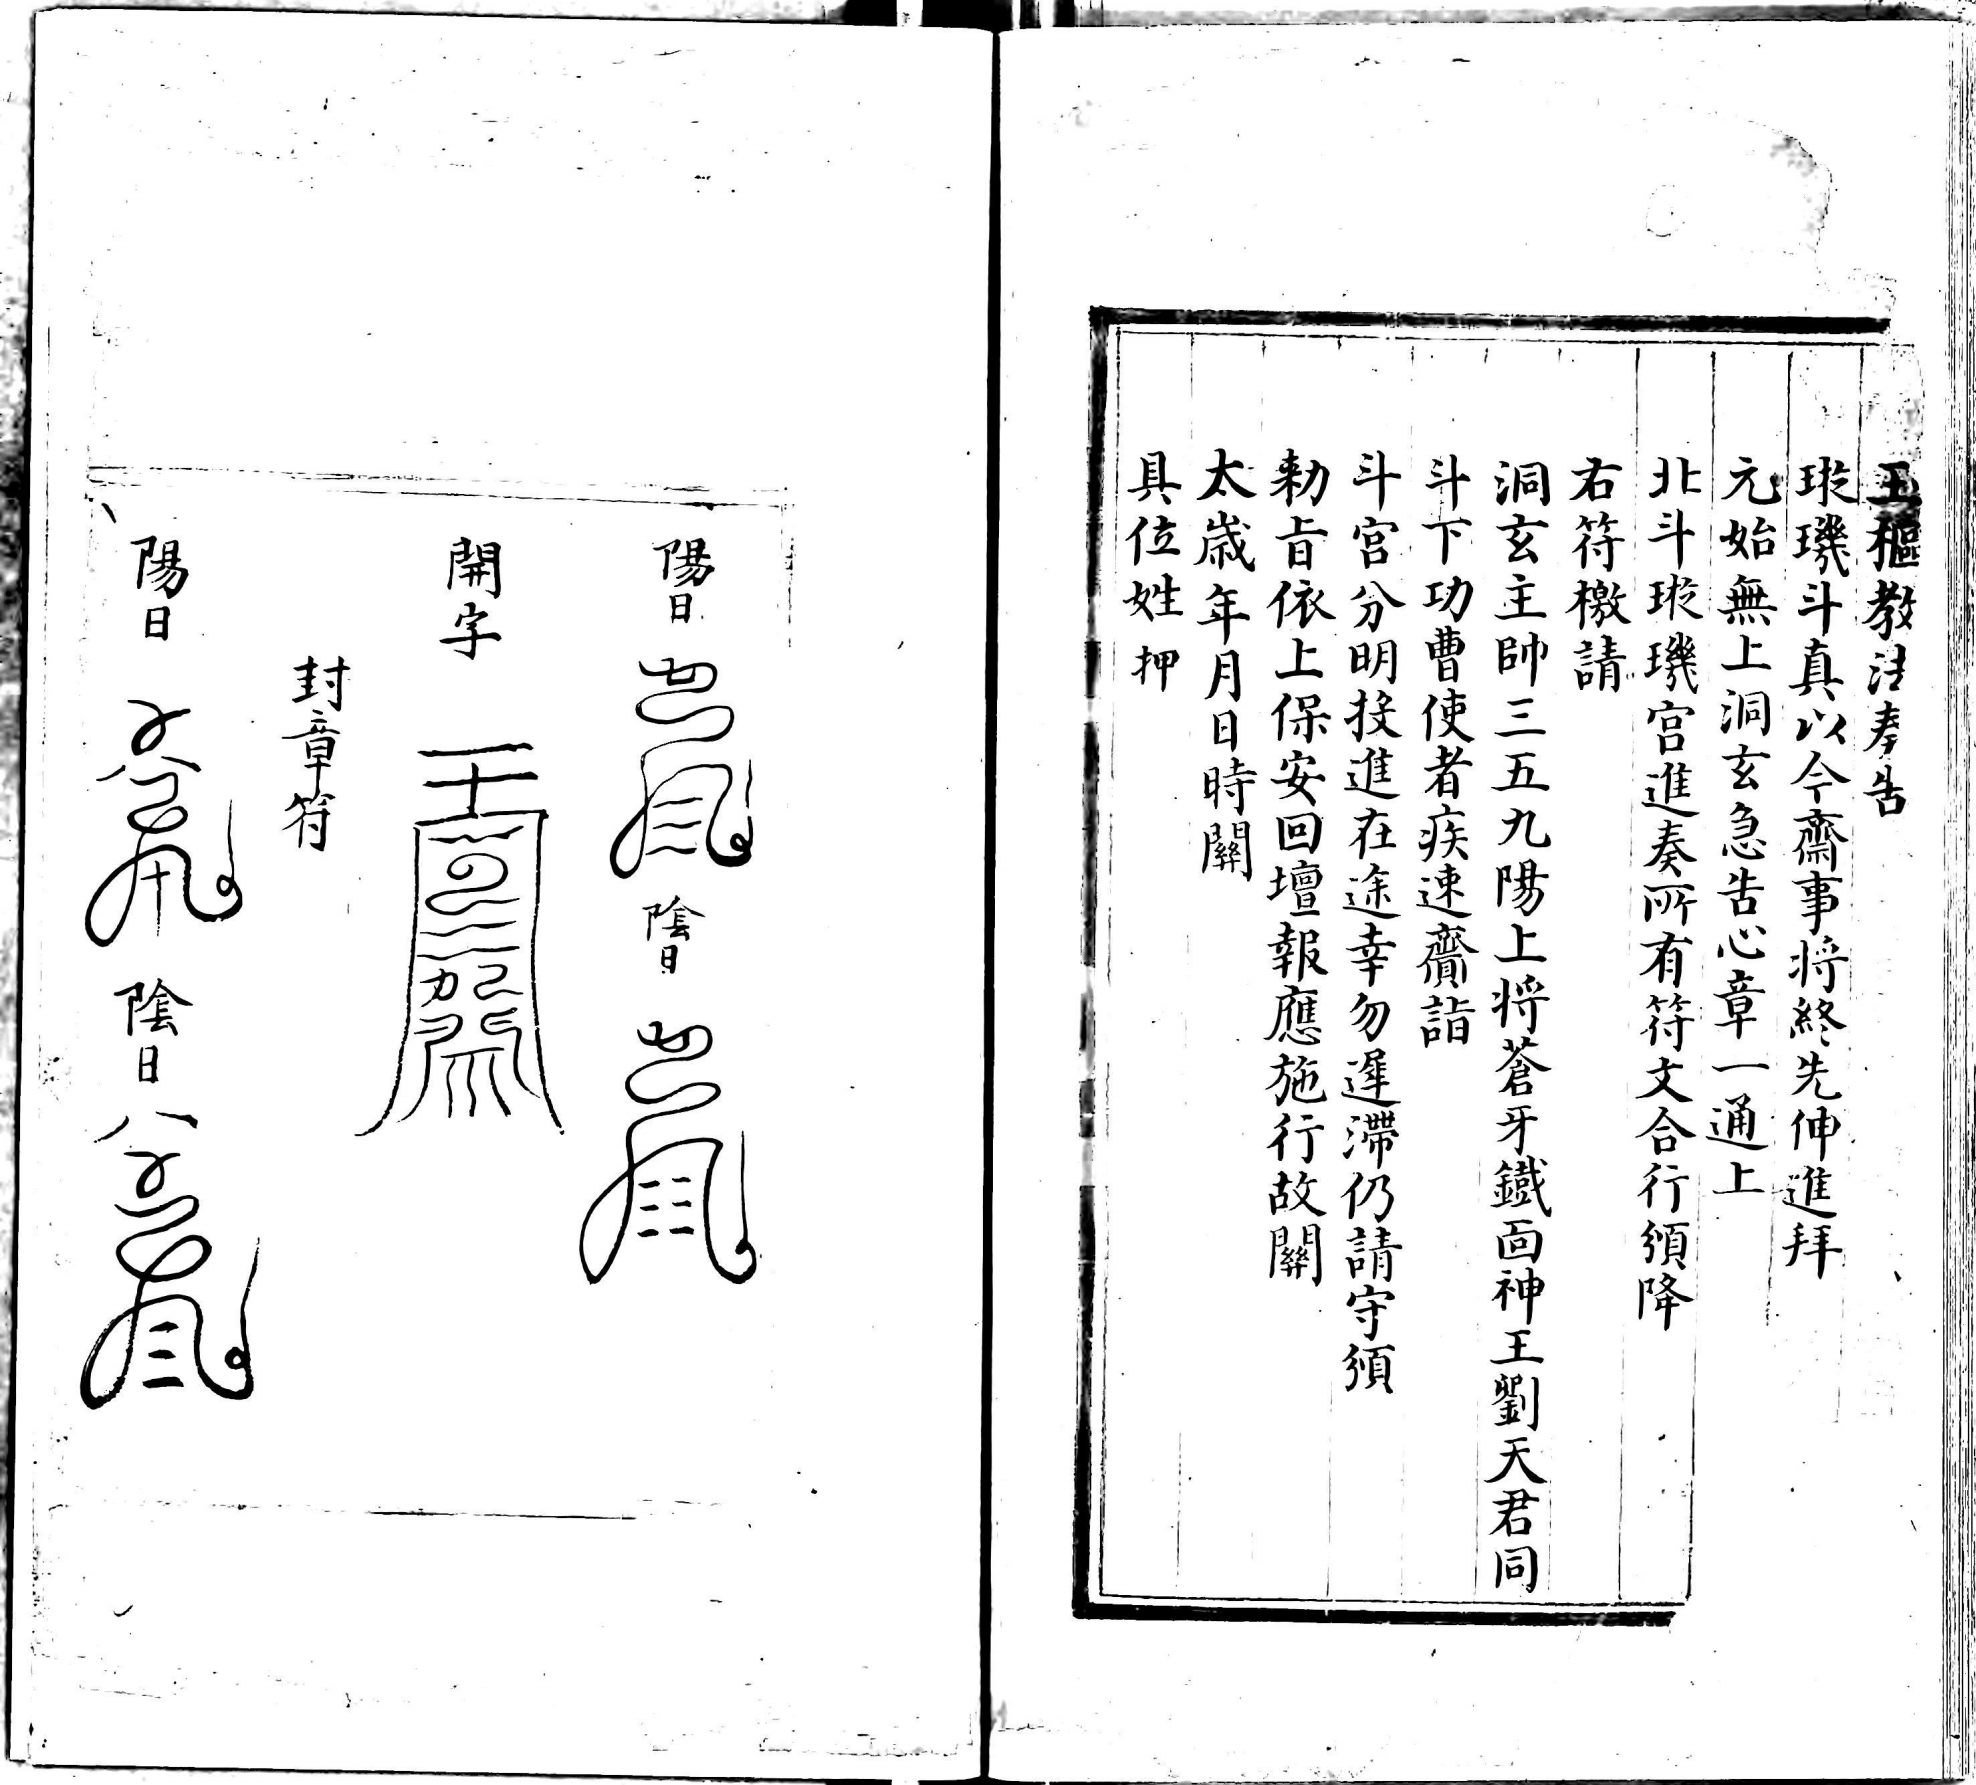 玉樞教法奏告
璇璣斗真以今齋事将終先伸進拜
元始無上洞玄急告心章一通上
北斗璇璣宮進奏所有符文合行頒降
右符檄請
洞玄主帥三五九陽上将蒼牙鐵面神王劉天君同
斗下功曹使者疾速齎詣
斗宮分明投進在途幸勿遲滯仍請守頒
勅旨依上保安回壇報應施行故關
太歲年月日時關
具位姓押
陽日
陰日
開字
封章符
陽日
陰日